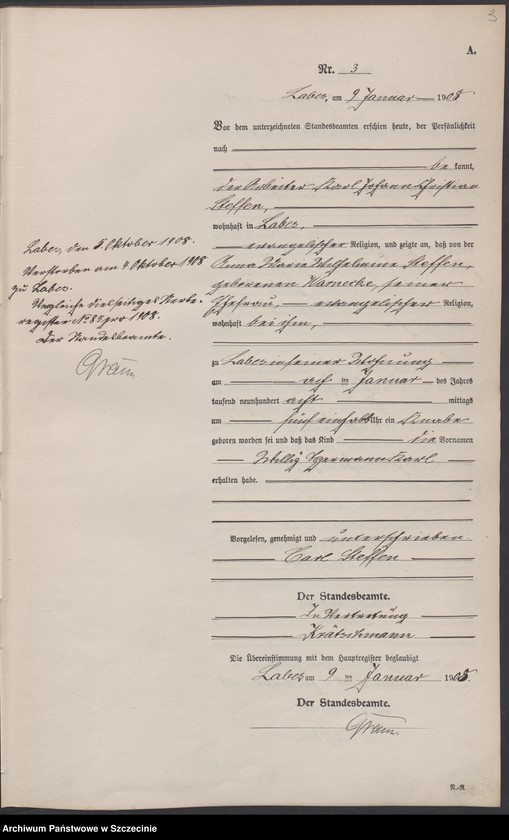 3
A.
Nr. 3
Labes, am 9 Januar 1908
Vor dem unterzeichneten Standesbeamten erschien heute, der Persönlichkeit
nach
be kannt,
der Arbeiter Karl Johann Christian
Steffen,
wohnhaft in Labes,
evangelischer Religion, und zeigte an, daß von der
Anna Marie Wilhelmine Steffen,
geborenen Warnecke, seiner
Ehefrau, evangelischer Religion,
wohnhaft bei ihm,
zu Labes in seiner Wohnung
am Januar des Jahres
tausend neunhundert acht mittags
um fünf einhalb Uhr ein Knabe
geboren worden sei und daß das Kind die Vornamen
Willy Hermann Karl
erhalten habe.
Vorgelesen, genehmigt und unterschrieben
Carl Steffen
Der Standesbeamte.
In Vertretung
Krätschmann
Die Übereinstimmung mit dem Hauptregister beglaubigt
Labes am 9 ten Januar 1908.
Der Standesbeamte.
Labes, den 5. Oktober 1908.
Verstorben am 4 Oktober 1908
zu Labes.
Vergleiche diesseitiges Sterbe-
register No 85 pro 1908.
Der Standesbeamte.
N.-R.
Archiwum Państwowe w Szczecinie